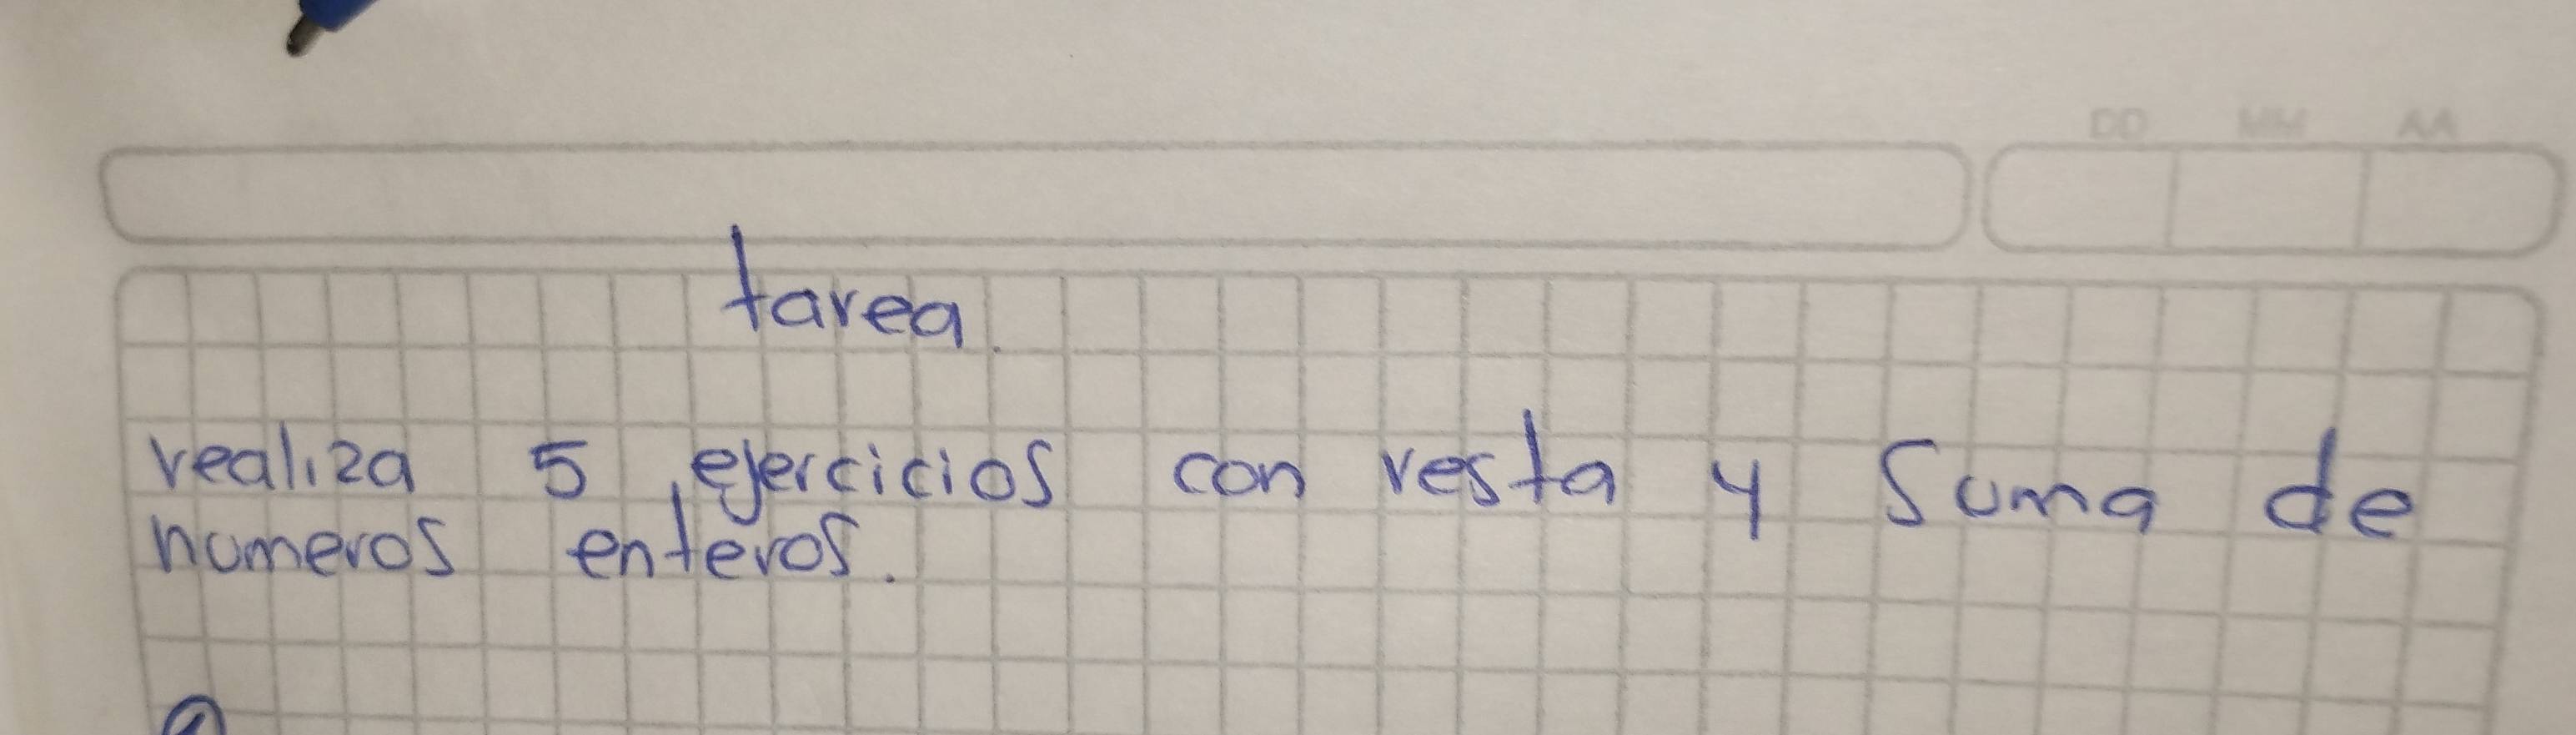 DD MM AA
tarea.
realiza 5 ejercicios con resta y suma de
numeros enteros.